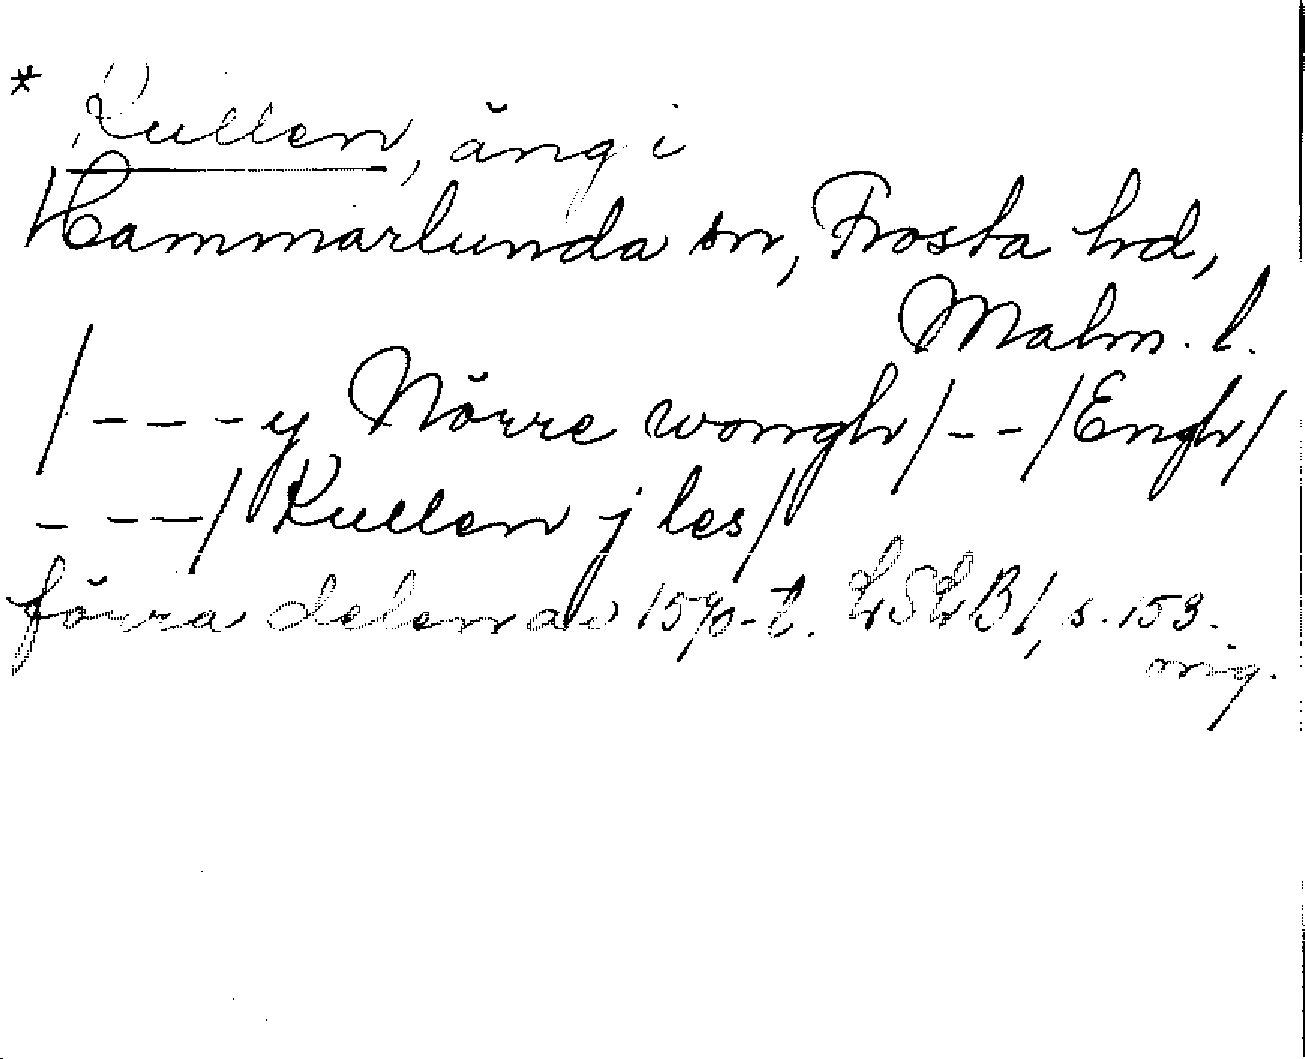 * Kullen, äng i
Hammarlunda sn, Frosta hd,
Malm. l.
/----y Nörre wongh/--/Engh/
----/Kullen j les/
förra delen av 1570-t. LSLB1, s. 153.
orig.